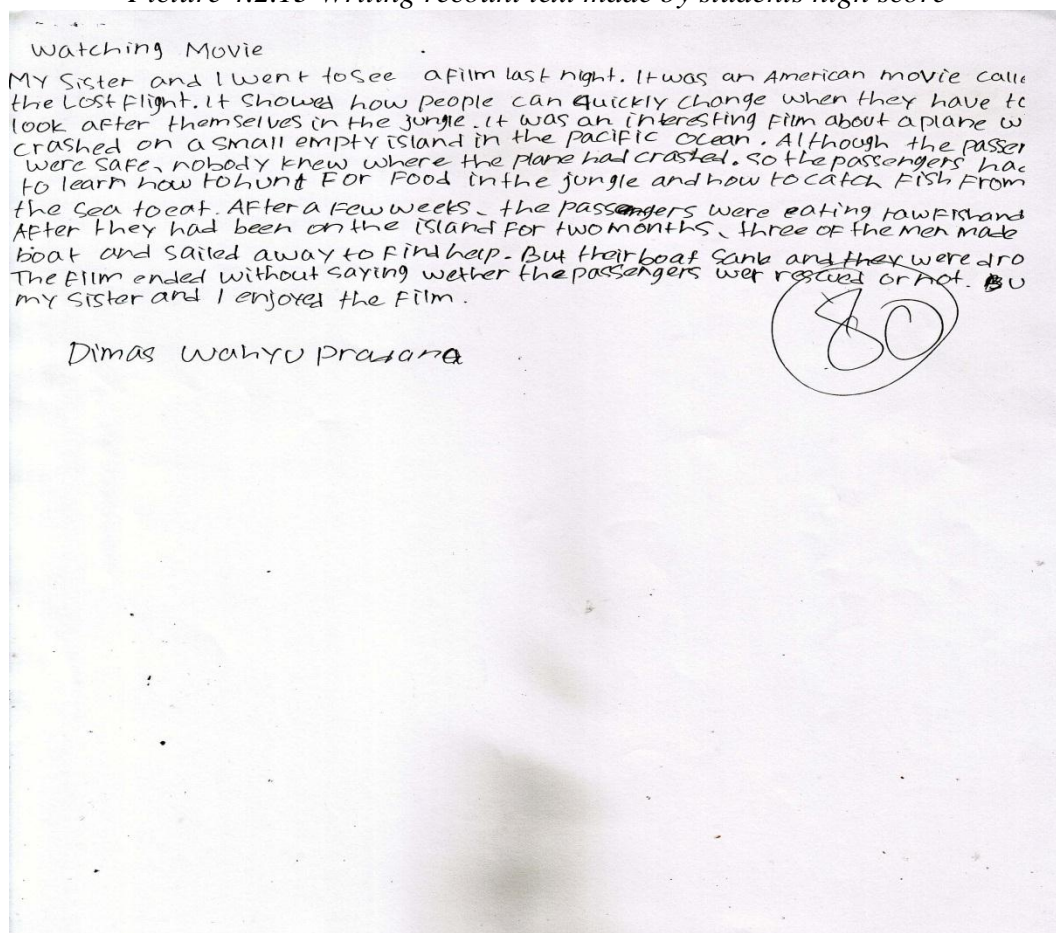 Picture 4.2.13 Writing recount text made by students high score
Watching Movie
My Sister and I went to see a film last night. It was an American movie calle
the Lost Flight. It showed how people can quickly change when they have to
look after themselves in the jungle. It was an interesting film about a plane w
crashed on a small empty island in the pacific ocean. Although the passen
were safe, nobody knew where the plane had crasted. So the passengers had
to learn how to hunt for food in the jungle and how to catch fish from
the sea to eat. After a few weeks, the passengers were eating raw fish and
After they had been on the island for two months, three of the men made
boat and sailed away to find help. But their boat sank and they were dro
The film ended without saying wether the passengers wer rescued or not. Bu
my sister and I enjoyed the film.
Dimas Wahyu
80